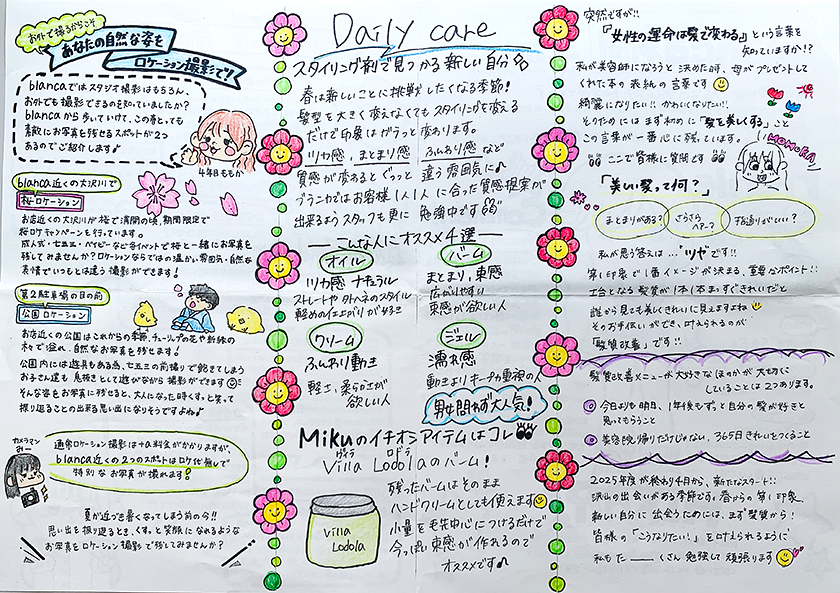 お外で撮るからこそ
あなたの自然な姿を
ロケーション撮影で!!
blancaではスタジオ撮影はもちろん、
お外でも撮影できるのを知っていましたか?
blancaから歩いていけて、この春とっても
素敵にお写真を残せるスポットが2つ
あるのでご紹介します♪
4年目ももか
blanca近くの大沢川で
桜ロケーション
お店近くの大沢川が桜で満開の時、期間限定で
桜ロケキャンペーンを行っています。
成人式・七五三・ベイビーなど各イベントで桜と一緒にお写真を
残してみませんか?ロケーションならではの温かい雰囲気・自然な
表情でいつもとは違う撮影ができます!
第2駐車場の目の前
公園ロケーション
お店近くの公園はこれからの季節、チューリップの花や新緑の
木々で溢れ、自然なお写真を残せます!
公園内には遊具もある為、七五三の前撮りで飽きてしまう
お子さん達も息抜きとして遊びながら撮影ができます
そんな姿をお写真に残せると、大人になった時くすっと笑って
振り返ることの出来る思い出になりそうですよね♪
カメラマン
みー
通常ロケーション撮影は+α料金がかかりますが、
blanca近くの2つのスポットはロケ代無しで
特別なお写真が撮れます!
夏が近づき暑くなってしまう前の今!!
思い出を振り返るとき、くすっと笑顔になれるような
お写真をロケーション撮影で残してみませんか?
Daily care
スタイリング剤で見つかる新しい自分
春は新しいことに挑戦したくなる季節!
髪型を大きく変えなくてもスタイリングを変える
だけで印象はグラっと変わります。
ツヤ感、まとまり感、ふんわり感など
質感が変わるとぐっと違う雰囲気に♪
ブランカではお客様1人1人に合った質感提案が
出来るようスタッフも更に勉強中です
こんな人にオススメ4選
オイル
ツヤ感 ナチュラル
ストレートや外ハネのスタイル
軽めの仕上がりが好き
バーム
まとまり、束感
広がりやすい
束感が欲しい人
クリーム
ふんわり動き
軽さ、柔らかさが
欲しい人
ジェル
濡れ感
動きよりキープ力重視の人
男女問わず大人気!
Mikuのイチオシアイテムはコレ
Villa Lodolaのバーム!
Villa
Lodola
残ったバームはそのまま
ハンドクリームとしても使えます
小量を毛先中心につけるだけで
今っぽい束感が作れるので
オススメです♪
突然ですが!!
「女性の運命は髪で変わる」という言葉を
知っていますか!?
私が美容師になろうと決めた時、母がプレゼントして
くれた本の表紙の言葉です
綺麗になりたい!!かわいくなりたい!!
そのためにはまず初めに「髪を美しくする」こと
この言葉が一番心に残っています。
ここで皆様に質問です
MOMOKA
「美しい髪って何?」
まとまりがある?
さらさらヘアー?
指通りがいい?
私が思う答えは…"ツヤ"です!!
第1印象で1番イメージが決まる、重要なポイント!!
土台となる髪質が1本1本まっすぐきれいだと
誰から見ても美しくきれいに見えますよね
そのお手伝いができ、叶えられるのが
「髪質改善」です!!
髪質改善メニューが大好きなほのかが大切に
していることは2つあります。
今日よりも明日、1年後もずっと自分の髪が好きと
思ってもらうこと
美容院帰りだけじゃない、365日きれいをつくること
2025年度が終わり4月から、新たなスタート!!
沢山の出会いがある季節です。春からの第1印象、
新しい自分に出会うためには、まず髪質から!
皆様の「こうなりたい!」を叶えられるように
私もた――くさん勉強して頑張ります